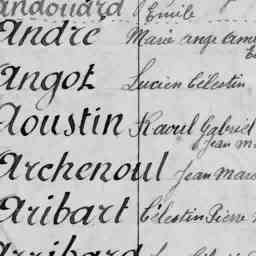 andouard Emile
André Marie Ange
Angot Lucien Célestin
Aoustin Raoul Gabriel
Jean
Archenoul Jean
Aribart Célestin Pierre